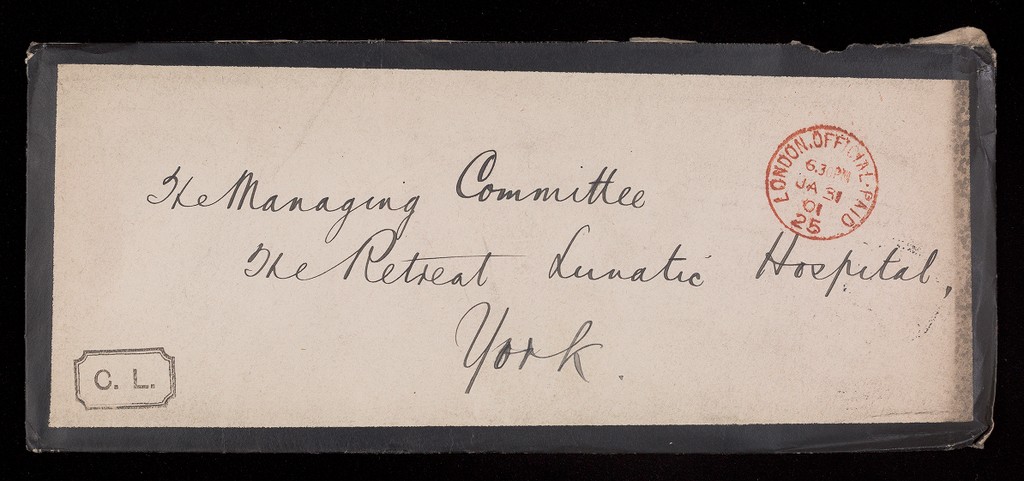 LONDON.OFFICIAL.PAID
6.30PM
JA 31
01
25
The Managing Committee
The Retreat Lunatic Hospital,
York.
C. L.